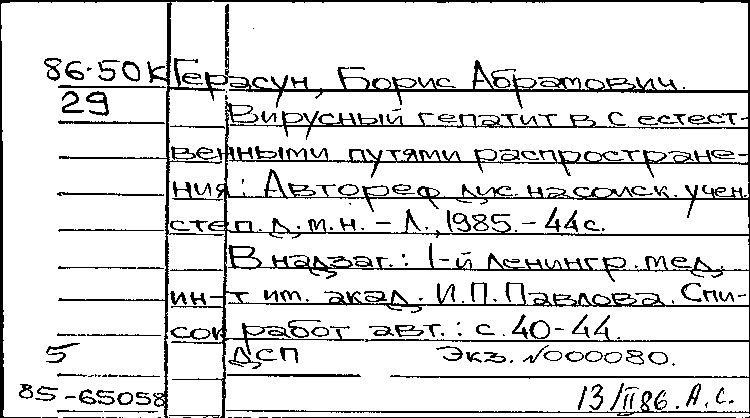 86-50К Герасун, Борис Абрамович.
29 Вирусный гепатит В с естест-
венными путями распростране-
ния: Автореф. дис. на соиск. учен.
степ. д.м.н. - Л., 1985. - 44 с.
В надзаг.: 1-й Ленингр. мед.
ин-т им. акад. И.П. Павлова. Спи-
сок работ авт.: с. 40-44.
5 ДСП Экз. №000080.
85-65058 13/II 86. А.С.